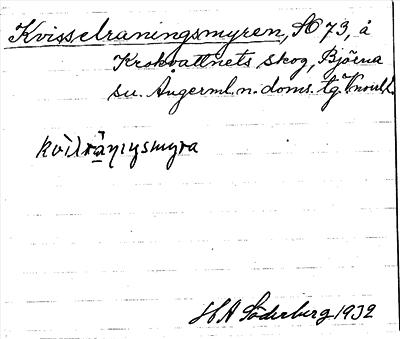 Kvisselraningsmyren, SO 73, å
Krokvattnets skog, Björna
sn. Ångerml. n. doms. tg.
kvilräŋiŋsmyra
H A Söderberg 1932